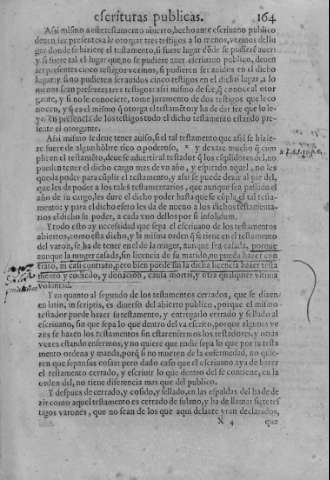 escrituras publicas. 164
Asi mismo a este testamento abierto, hecho ante escriuano publico
deuen ser presentes a le otorgar tres testigos a lo menos, vezinos del lu
gar donde se hiziere el testamento, si fuere lugar donde se pudieré auer:
y si fuere tal el lugar que no se pudiere auer escriuano publico, deuen
ser presentes cinco testigos vezinos, si pudieren ser auidos en el dicho
lugar: y si no pudieren ser auidos cinco testigos en el dicho lugar a lo
menos sean presentes tres testigos: asi mismo de fee, q̃ conoce al otor
gante, y si no le conociere, tome juramento de dos testigos que le co
nocen, y q̃ es el mismo q̃ otorga el testamẽto y ha de dar fee que lo le
yo en presencia de los testigos todo el dicho testamento estando pre
sente el otorgante.
Asi mismo se deue tener auiso, si el tal testamento que asi se hizie
re fuere de algun hõbre rico o poderoso, y dexare mucho q̃ cum
plir en el testamẽto, deue se aduertir al testador q̃ los cõplidores del, no
pueden tener el dicho cargo mas de vn año, y espirado aquel, no les
queda poder para cũplir el testamento, y asi se puede dezir al pie del,
que les da poder a los tales testamentarios, que aunque sea pasado el
año de su cargo, les dure el dicho poder hasta que se cũpla el tal testa-
mento: y para el dicho efeto les da de nueuo a los dichos testamenta-
rios el dicho su poder, a cada vno dellos por si insolidum.
Y todo esto ay necesidad que sepa el escriuano de los testamentos
abiertos, como esta dicho, y la misma orden q̃ se tiene en el testamento
del varon, se ha de tener en el de la muger, aunque sea casada, porque
aunque la muger casada, sin licencia de su marido, no pueda hazer con
trato, ni casi contrato, pero bien puede sin la dicha licencia hazer testa
mento y codicilo, y donacion, causa mortis, y otra qualquier vltima
voluntad.
Y en quanto al segundo de los testamentos cerrados, que se dizen
en latin, in scriptis, es diuerso del abierto publico, porque el mismo
testador puede hazer su testamento, y entregarlo cerrado y sellado al
escriuano, sin que sepa lo que dentro del va escrito, porque algunas ve
zes se hazen los testamentos sin estar enfermos los testadores, y otras
vezes estando enfermos, y no quiere que nadie sepa lo que por su testa
mento ordena y manda, porq̃ si no mueren de la enfermedad, no quie-
ren que sepan sus cosas: pero dado caso que el escriuano aya de hazer
el testamento cerrado, y escriuir lo que dentro del se contiene, en la
orden del, no tiene diferencia mas que del publico.
Y despues de cerrado, y cosido, y sellado, en las espaldas del ha de de
zir como aquel testamento es cerrado de fulano, y ha de llamar siete tes
tigos varones, que no sean de los que aqui delante yran declarados,
X 4 que